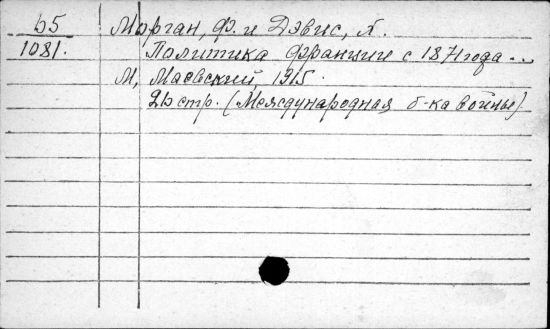 Б5 Морган, Ф. и Дэвис, А.
1081. Политика Франции с 1871 года...
М, Маевский, 1915.
2Б стр. (Международная б-ка войны)